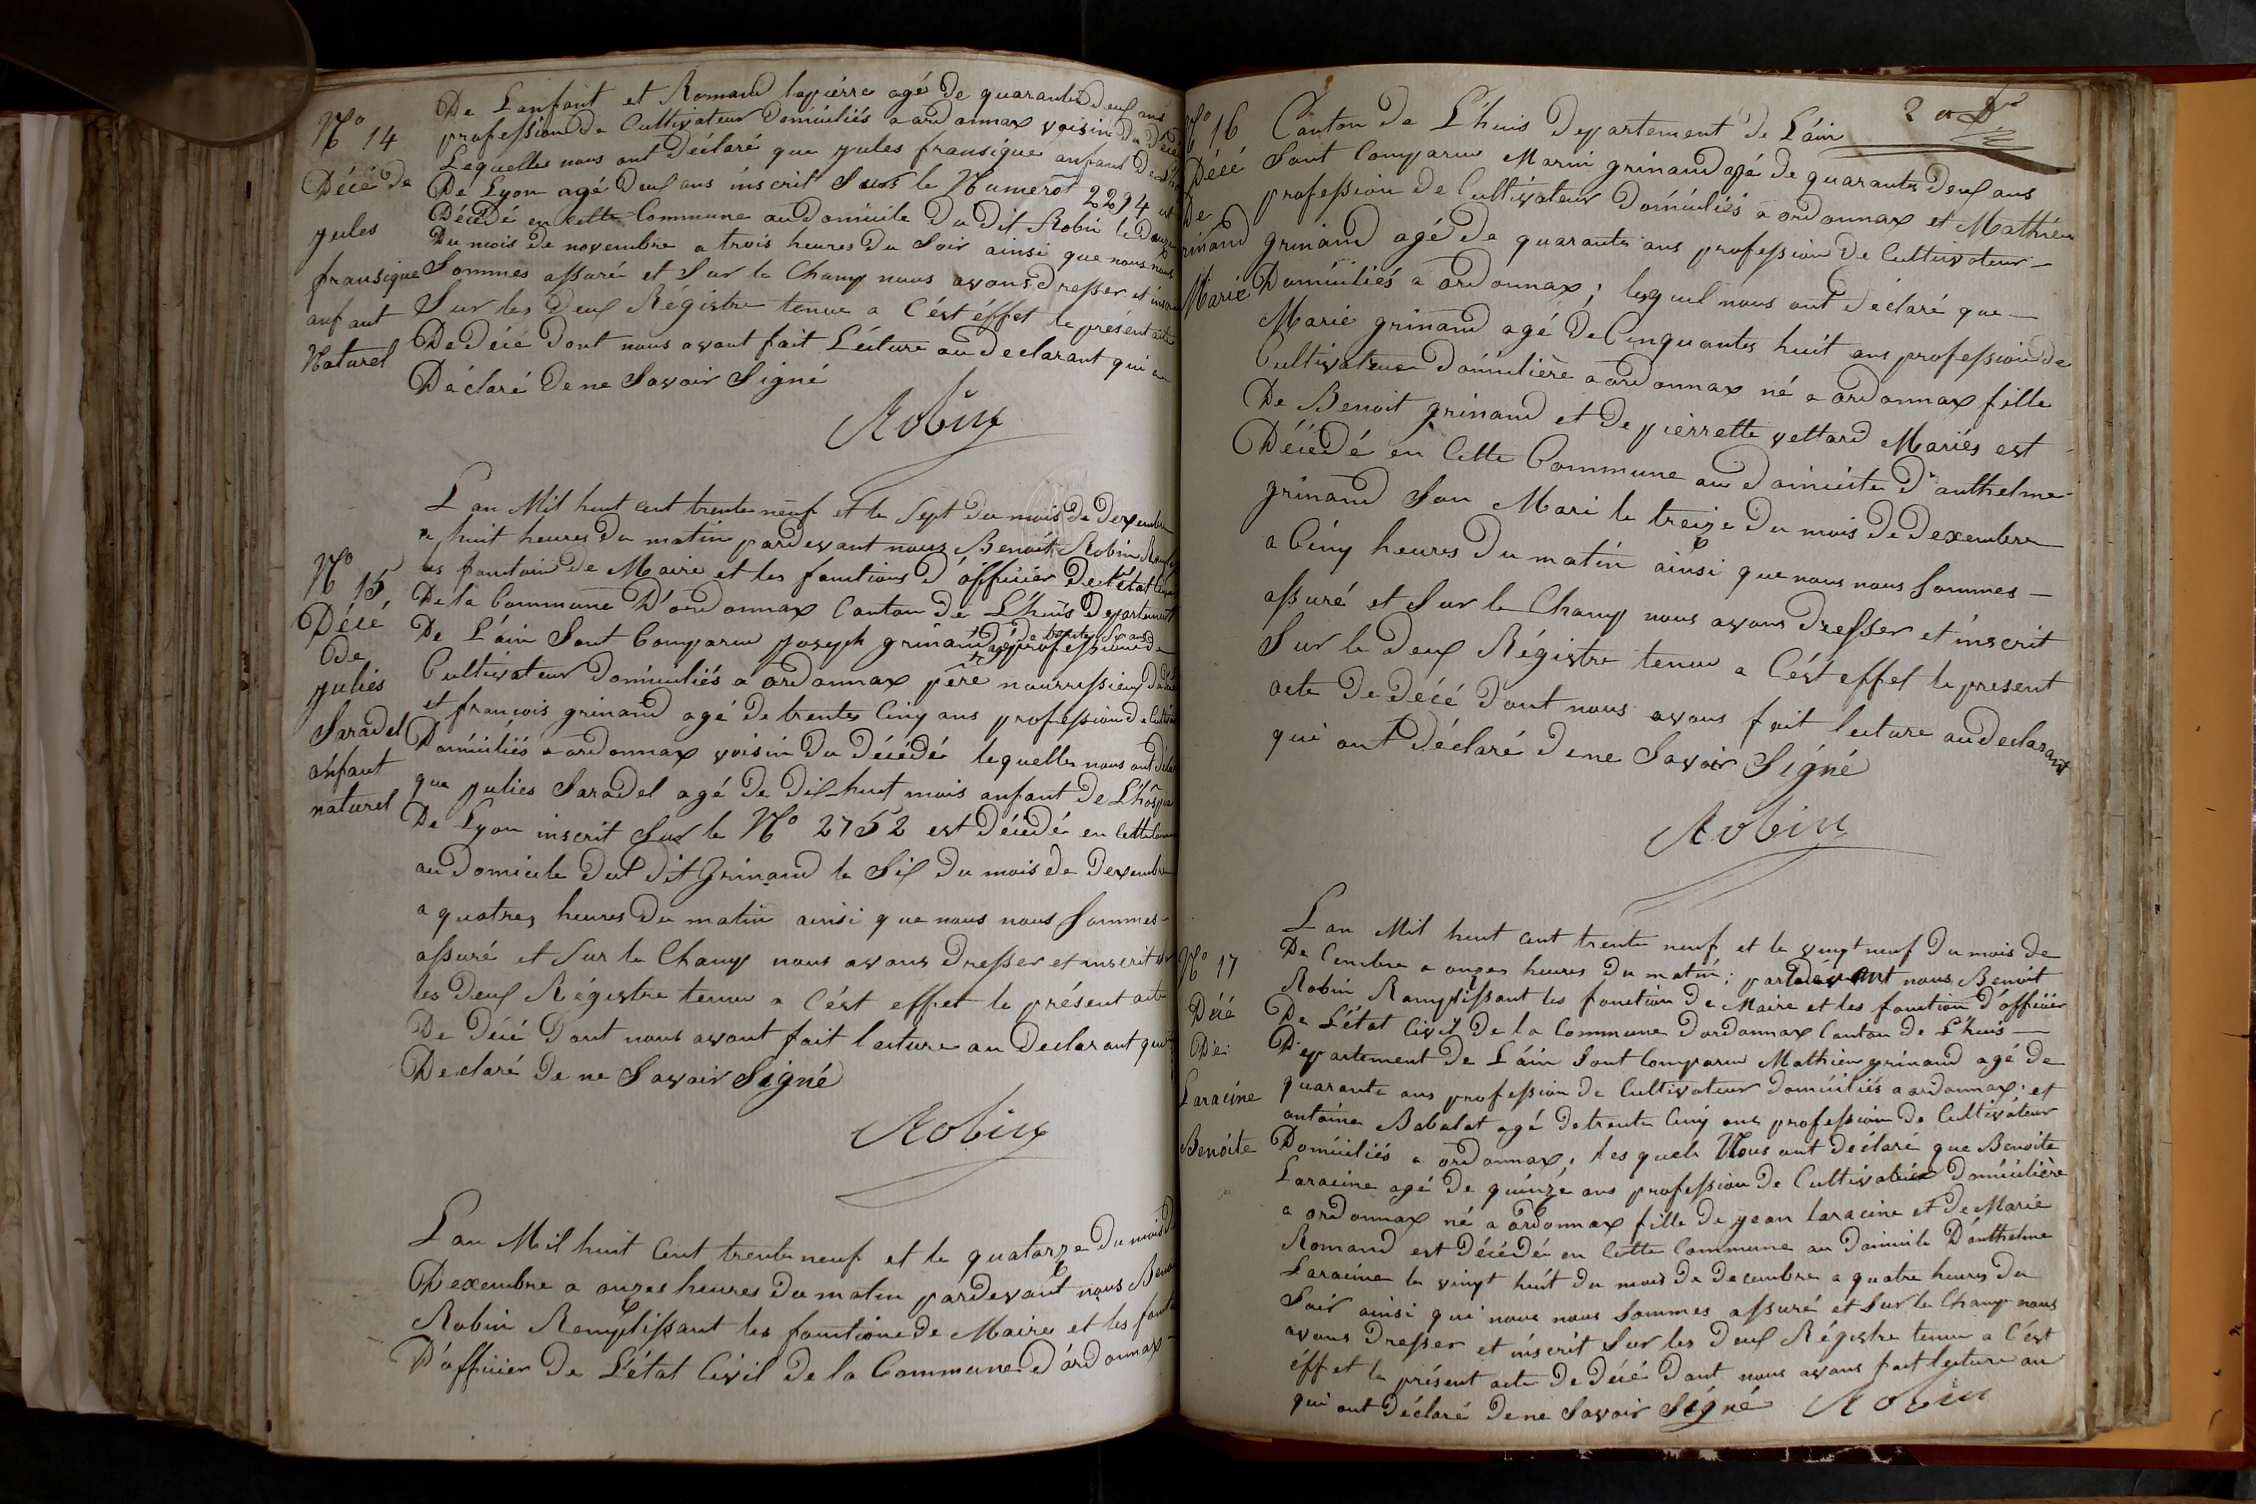 De L'anfant et Romand lapierre agé de quarante deux ans
profession de Cultivateur domiciliés a ordonnax voisin du décé
Lequelles nous ont déclaré que jules fransique anfant de
De Lyon agé deux ans inscrit Sur le Numerot 2294 est
Décédé en cette Commune au domicile du dit Robin le douze
Du mois de novembre a trois heures du Soir ainsi que nous nous
Sommes assuré et Sur le Champ nous avons dresser et inscri
Sur les deux Régistre tenue a C'ést éffet le présent acte
De Décé dont nous avont fait Lécture au declarant qui on
Déclaré de ne Savoir Signé
Robin
No 14
Décé de
jules
fransique
anfant
Naturel
L'an Mil huit cent trente neuf et le Sept du mois de dexembre
a huit heures du matin pardevant nous Benoit Robin Rempl
les fonction de Maire et les fonctions d'officier de l'état civil
De la Commune D'ordonnax Canton de L'huis Departement
De L'ain Sont Comparu joseph grinand agé de trente Six ans profession de
Cultivateur domiciliés a ordonnax père nourrissieux du décé
et francois grinand agé de trentes Cinq ans profession de Cultiva
Domiciliés a ordonnax voisin du décédé lequelles nous ont décla
que julies Saradel agé de dix-huit mois anfant de L'hôspi
De Lyon inscrit Sur le No 2752 est décédé en cette Comm
au domicile dud dit Grinand le Six du mois de dexembre
a quatres heures du matin ainsi que nous nous Sommes
assuré et Sur le Champ nous avons dresser et inscrit sur
les deux Régistre tenue a C'ést effet le présent acte
De Décé dont nous avont fait lecture au declarant qui
Declaré de ne Savoir Signé
Robin
No 15
Décé
de
julies
Saradel
anfant
naturel
L'an Mil huit Cent trente neuf et le quatorze du mois de
Dexembre a onzes heures du matin pardevant nous Benoi
Robin Remplissant les fonctions de Maire et les foncti
D'officier de L'état Civil de la Commune d'ordonnax
Canton de L'huis Departement de L'ain
Sont Comparu Marin grinand agé de quarantes deux ans
profession de Cultivateur domiciliés a ordonnax et Mathieu
grinand agé de quarante ans profession de Cultivateur
Domiciliés a ordonnax; lesquel nous ont déclaré que
Marie grinand agé de Cinquantes huit ans profession de
Cultivateur domicilière a ordonnax né a ordonnax fille
De Benoit grinand et de pierrette vettard Mariés est
Décédé en Cette Commune au domicile d'anthelme
grinand Son Mari le treize du mois de Dexembre
a Cinq heures du matin ainsi que nous nous Sommes
assuré et Sur le Champ nous avons dresser et inscrit
Sur le deux Régistre tenue a C'ést effet le present
acte de Décé dont nous avons fait lecture au declarant
qui ont déclaré de ne Savoir Signé
Robin
No 16
Décé
De
rinand
Marie
L'an Mil huit cent trente neuf et le vingt neuf du mois de
De Cembre a onzes heures du matin; pardevant nous Benoit
Robin Remplissant les fonction de Maire et les fonction d'officier
De L'état Civil de la Commune d'ordonnax Canton de L'huis
Departement de L'ain Sont Comparu Mathieu grinand agé de
quarante ans profession de Cultivateur domiciliés a ordonnax; et
antoine Babolat agé de trente Cinq ans profession de Cultivateur
Domiciliés a ordonnax; les quels Nous ont déclaré que Benoite
Laracine agé de quinze ans profession de Cultivateur domicilière
a ordonnax né a ordonnax fille de jean laracine et de Marie
Romand est décédé en Cette Commune au domicile D'anthelme
Laracine le vingt huit du mois de decembre a quatre heures du
Soir ainsi qui nous nous Sommes assuré et Sur le Champ nous
avons dresser et inscrit Sur les deux Régistre tenue a C'ést
éffet le présent acte de Décé dont nous avons fait lecture au
qui ont déclaré de ne Savoir Signé Robin
No 17
Décé
De
Laracine
Benoite